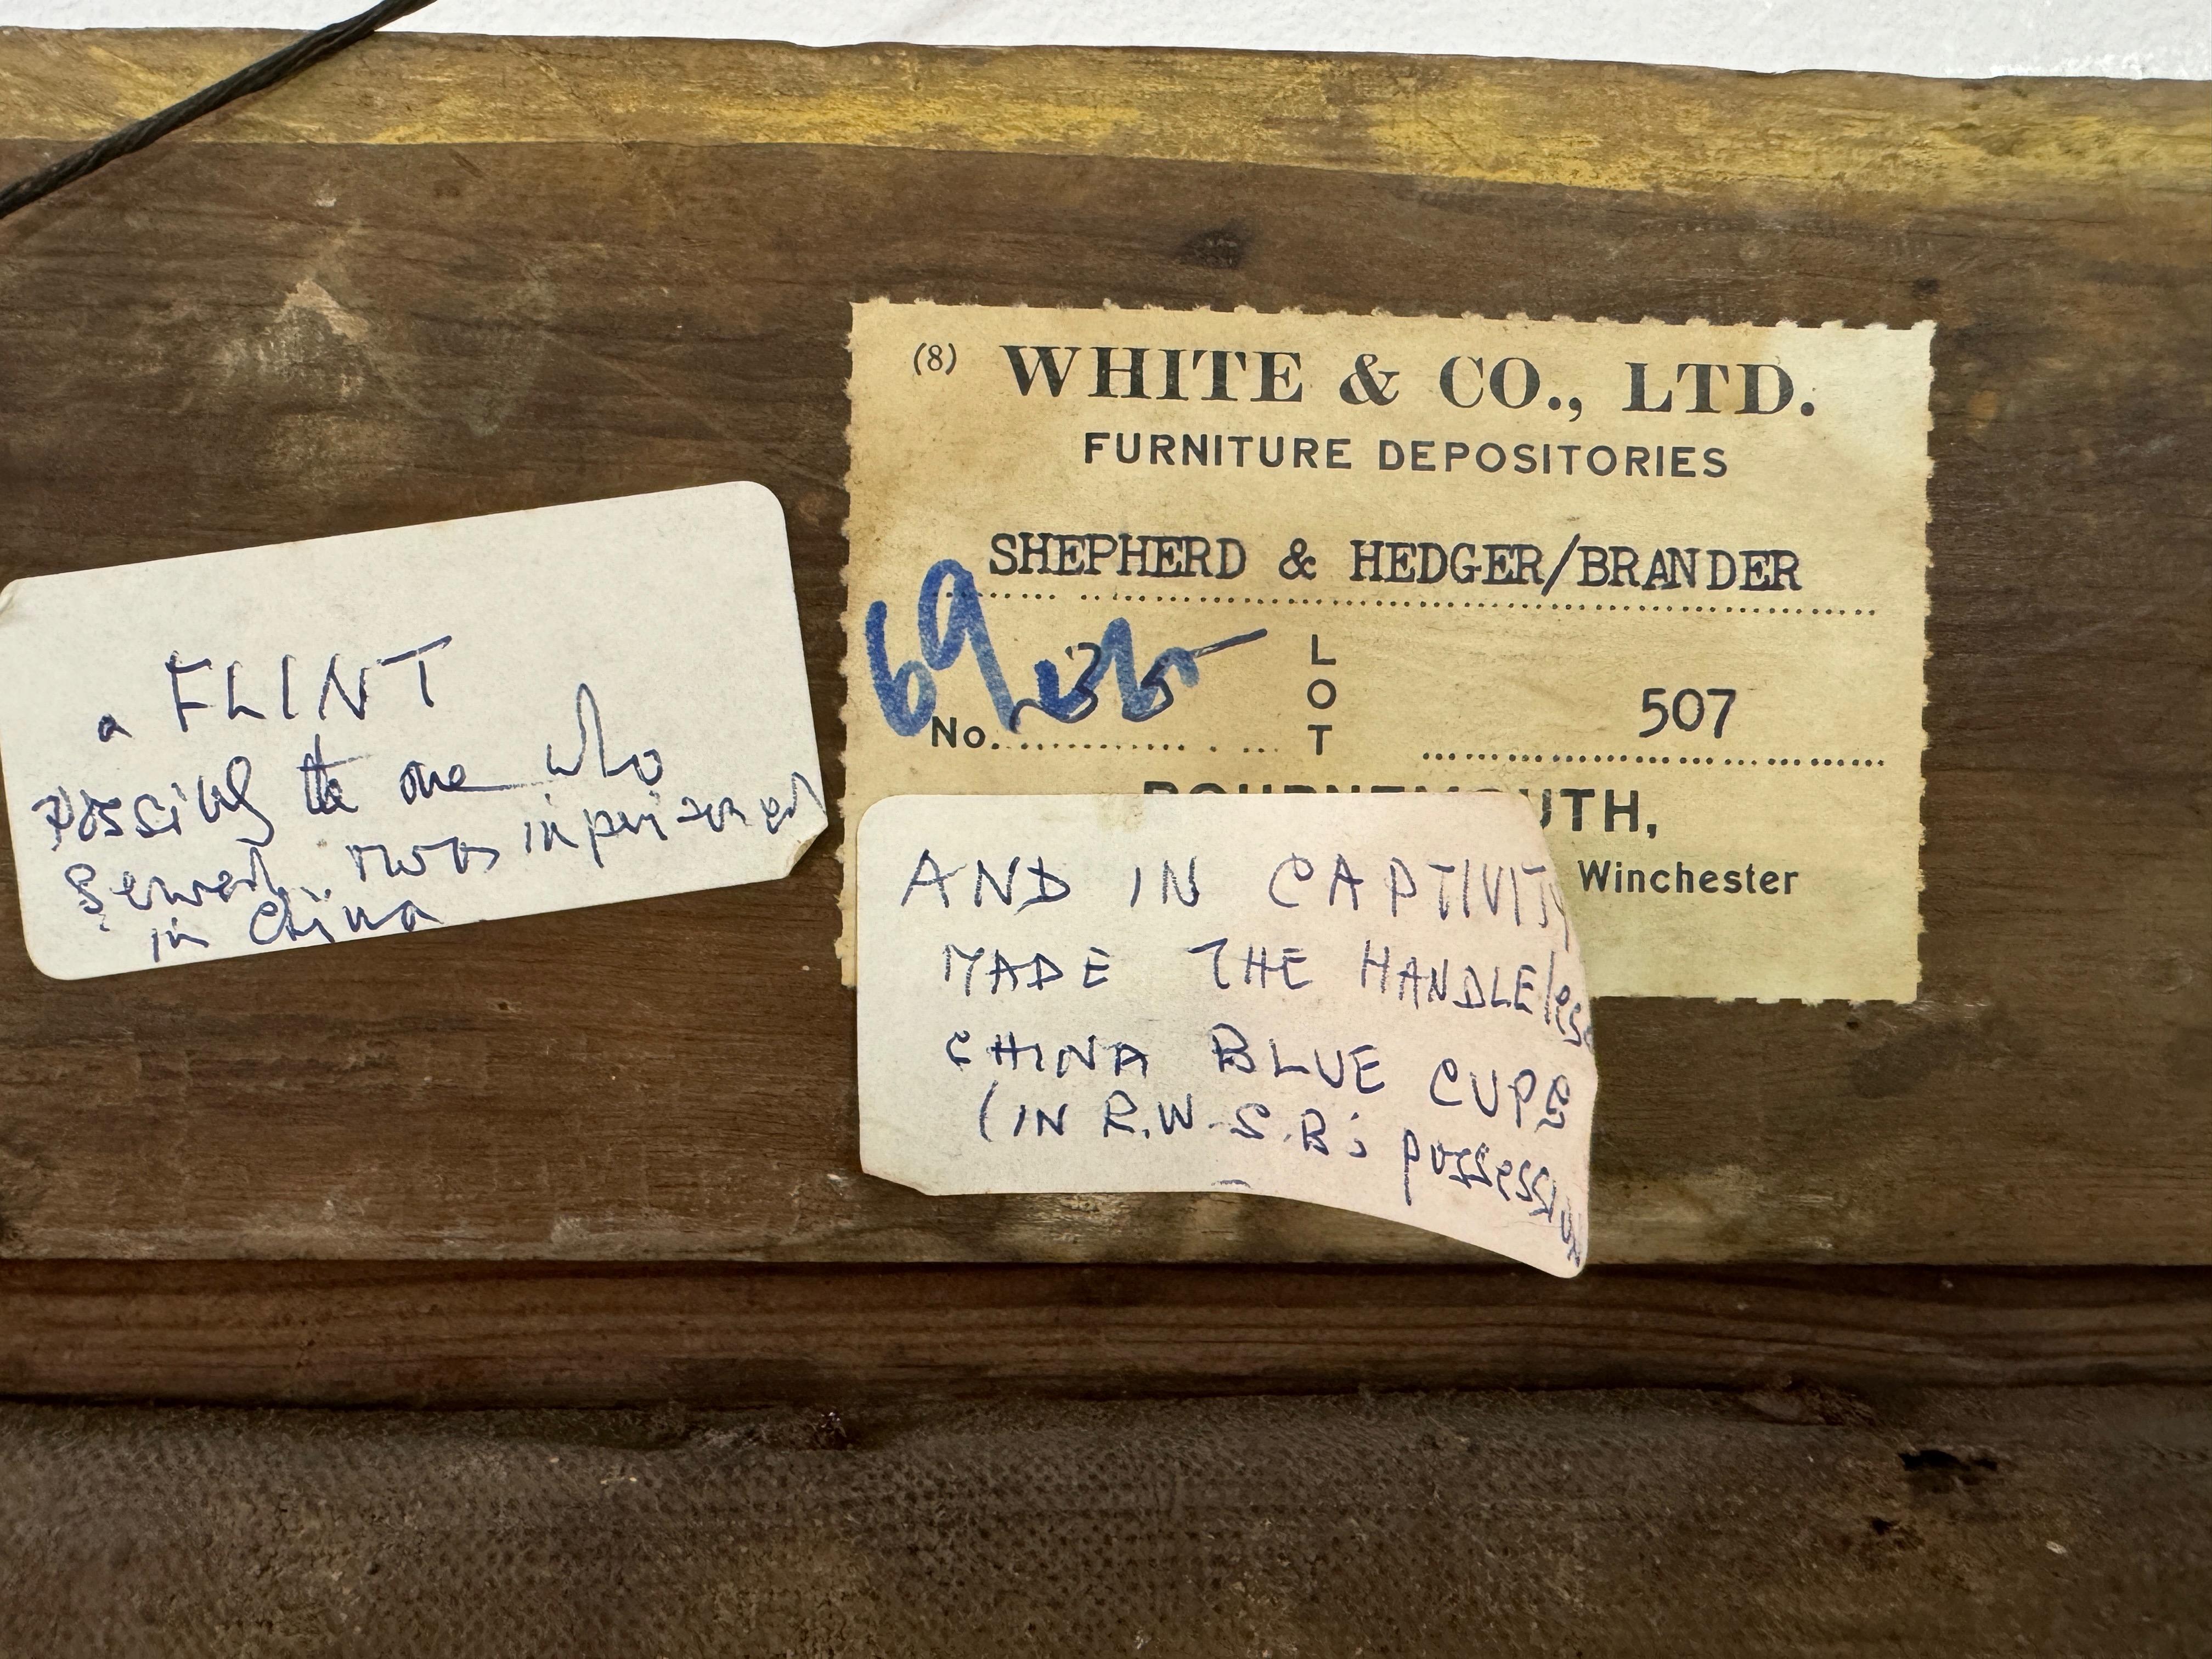 a FLINT
possibly the one who
served & was imprisoned
in China
(8) WHITE & CO., LTD.
FURNITURE DEPOSITORIES
SHEPHERD & HEDGER/BRANDER
69
No. 35
LOT 507
BOURNEMOUTH,
Winchester
AND IN CAPTIVITY
MADE THE HANDLEless
CHINA BLUE CUPS
(IN R.W.S.B's possession